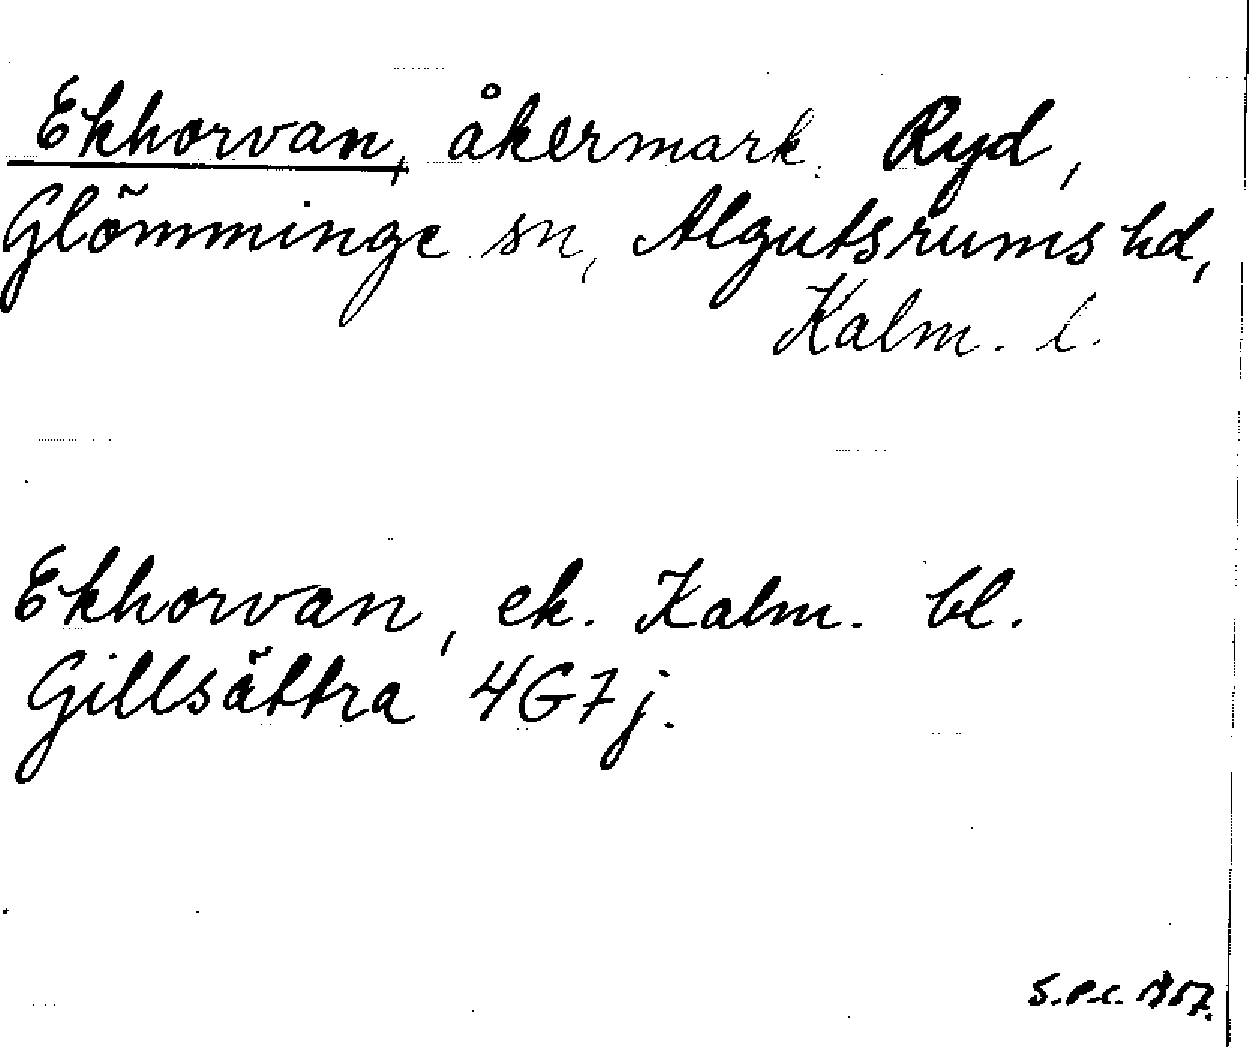 Ekhorvan, åkermark. Ryd,
Glömminge sn, Algutsrums hd,
Kalm. l.
Ekhorvan, ek. Kalm. bl.
Gillsättra 4G7j.
S.P.C. 1957.